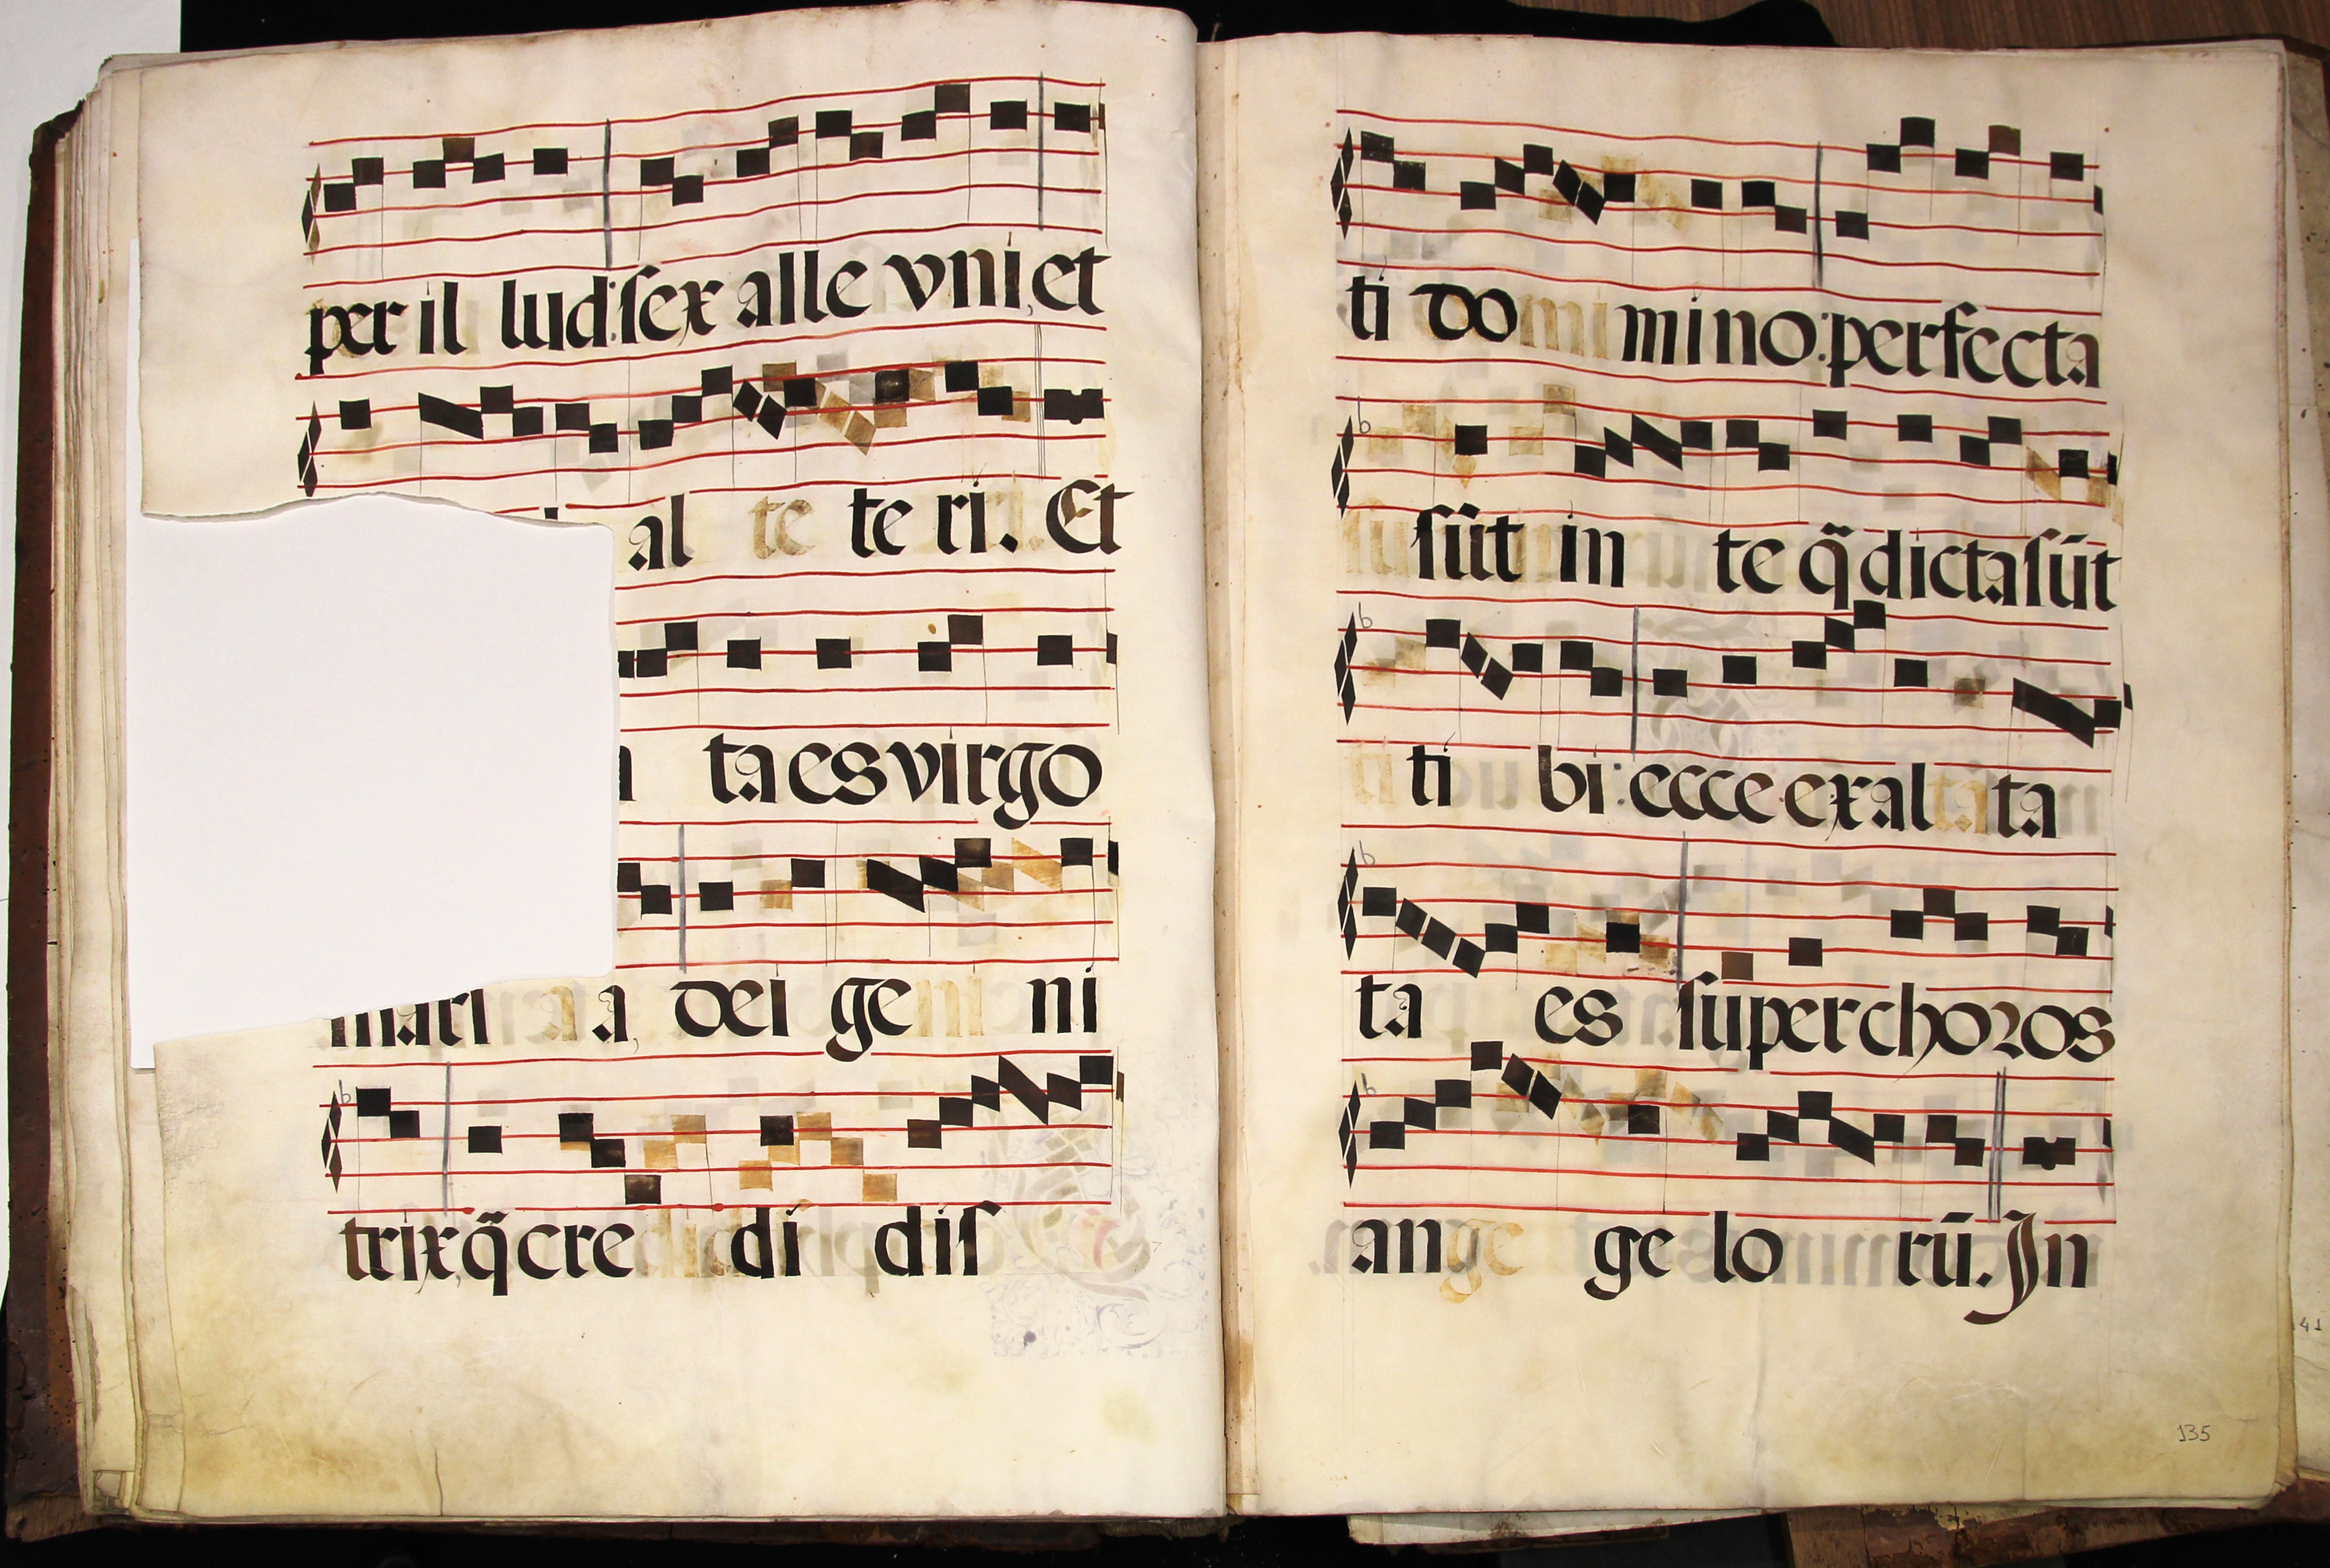 per il lud: sex alle vni, et
al te te ri. Et
ta es virgo
mari a a, dei ge ni ni
trix, q̃ cre di dis
ti do mi mi no: perfecta
su sūt in te q̃ dicta sūt
ti ti bi: ecce exal ta ta
ta es super choros
an ge ge lo rū. In
135
41